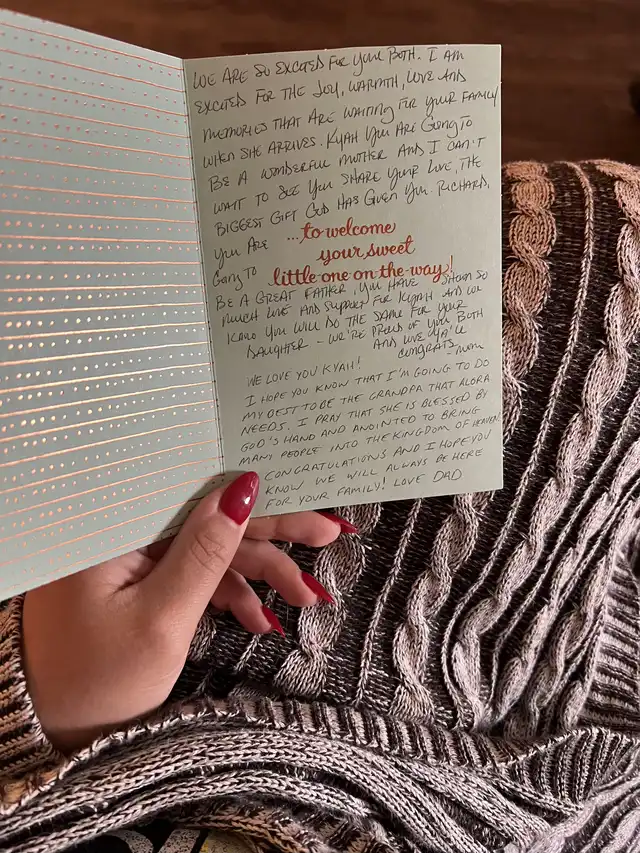 WE ARE SO EXCITED FOR YOU BOTH. I AM
EXCITED FOR THE JOY, WARMTH, LOVE AND
MEMORIES THAT ARE WAITING FOR YOUR FAMILY
WHEN SHE ARRIVES. KYAH YOU ARE GOING TO
BE A WONDERFUL MOTHER AND I CAN'T
WAIT TO SEE YOU SHARE YOUR LOVE, THE
BIGGEST GIFT GOD HAS GIVEN YOU. RICHARD,
YOU ARE ...to welcome
your sweet
GOING TO little one on the way!
BE A GREAT FATHER, YOU HAVE SHOWN SO
MUCH LOVE AND SUPPORT FOR KYAH AND WE
KNOW YOU WILL DO THE SAME FOR YOUR
DAUGHTER - WE'RE PROUD OF YOU BOTH
AND LOVE YA'LL
CONGRATS - MOM
WE LOVE YOU KYAH!
I HOPE YOU KNOW THAT I'M GOING TO DO
MY BEST TO BE THE GRANDPA THAT ALORA
NEEDS. I PRAY THAT SHE IS BLESSED BY
GOD'S HAND AND ANOINTED TO BRING
MANY PEOPLE INTO THE KINGDOM OF HEAVEN.
CONGRATULATIONS AND I HOPE YOU
KNOW WE WILL ALWAYS BE HERE
FOR YOUR FAMILY! LOVE DAD